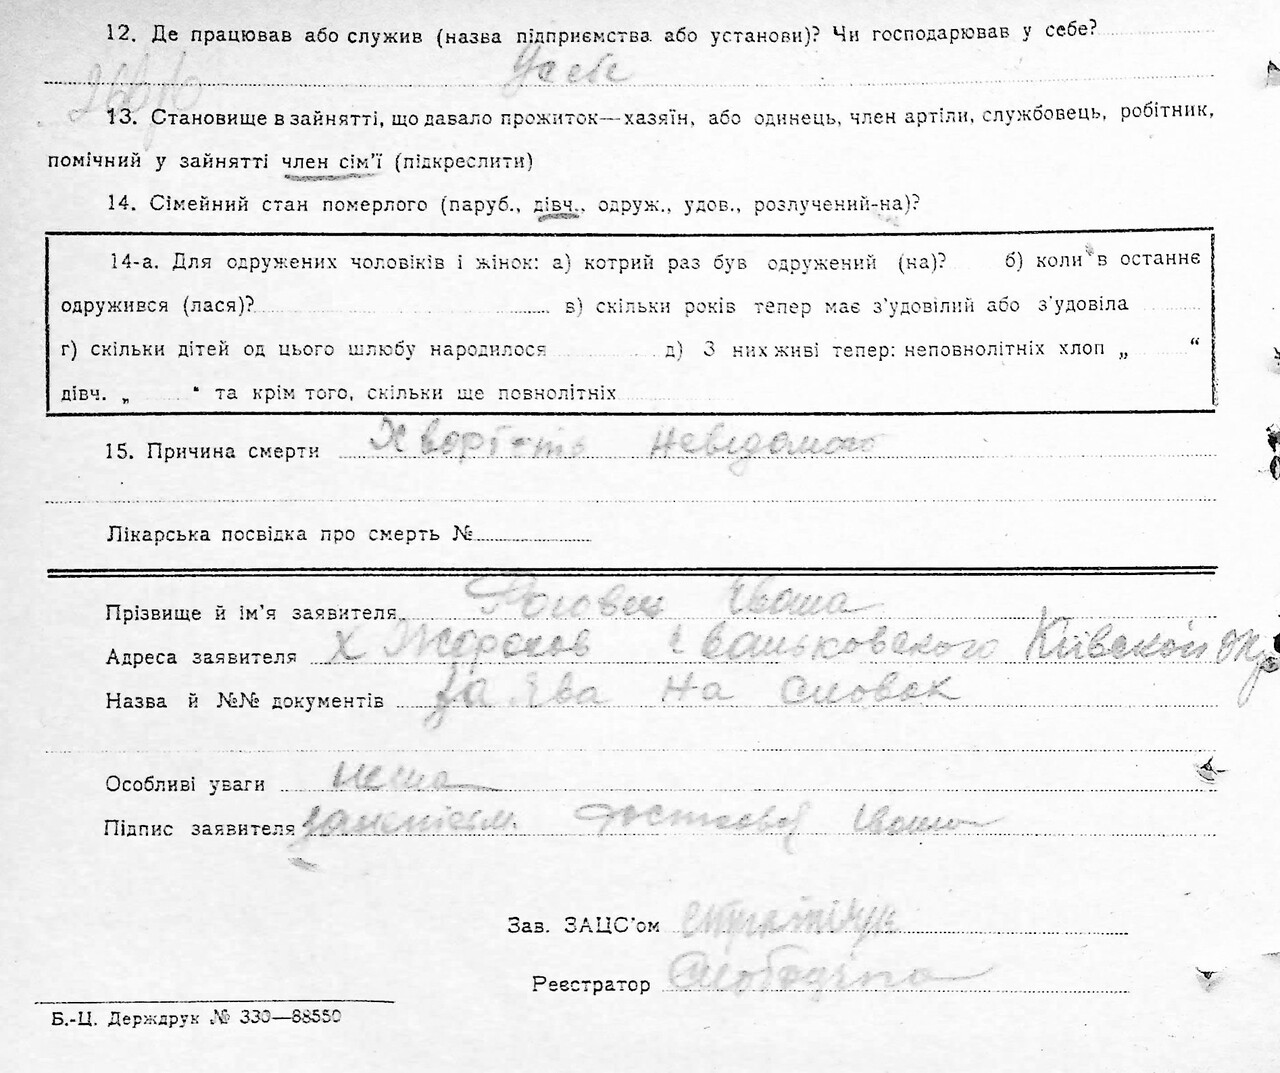 12. Де працював або служив (назва підприємства або установи)? Чи господарював у себе?
У себе
13. Становище в зайнятті, що давало прожиток—хазяїн, або одинець, член артіли, службовець, робітник,
помічний у зайнятті член сім'ї (підкреслити)
14. Сімейний стан померлого (паруб., дівч., одруж., удов., розлучений-на)?
14-а. Для одружених чоловіків і жінок: а) котрий раз був одружений (на)? б) коли в останнє
одружився (лася)? в) скільки років тепер має з'удовілий або з'удовіла
г) скільки дітей од цього шлюбу народилося д) З них живі тепер: неповнолітніх хлоп „ “
дівч. „ “ та крім того, скільки ще повнолітніх
15. Причина смерти Хворість невідомо
Лікарська посвідка про смерть №
Прізвище й ім'я заявителя Івана
Адреса заявителя х Іваньковского Київской Окр
Назва й №№ документів заява на словах
Особливі уваги нема
Підпис заявителя Івано
Зав. ЗАЦС'ом
Реєстратор
Б.-Ц. Держдрук № 330—68550